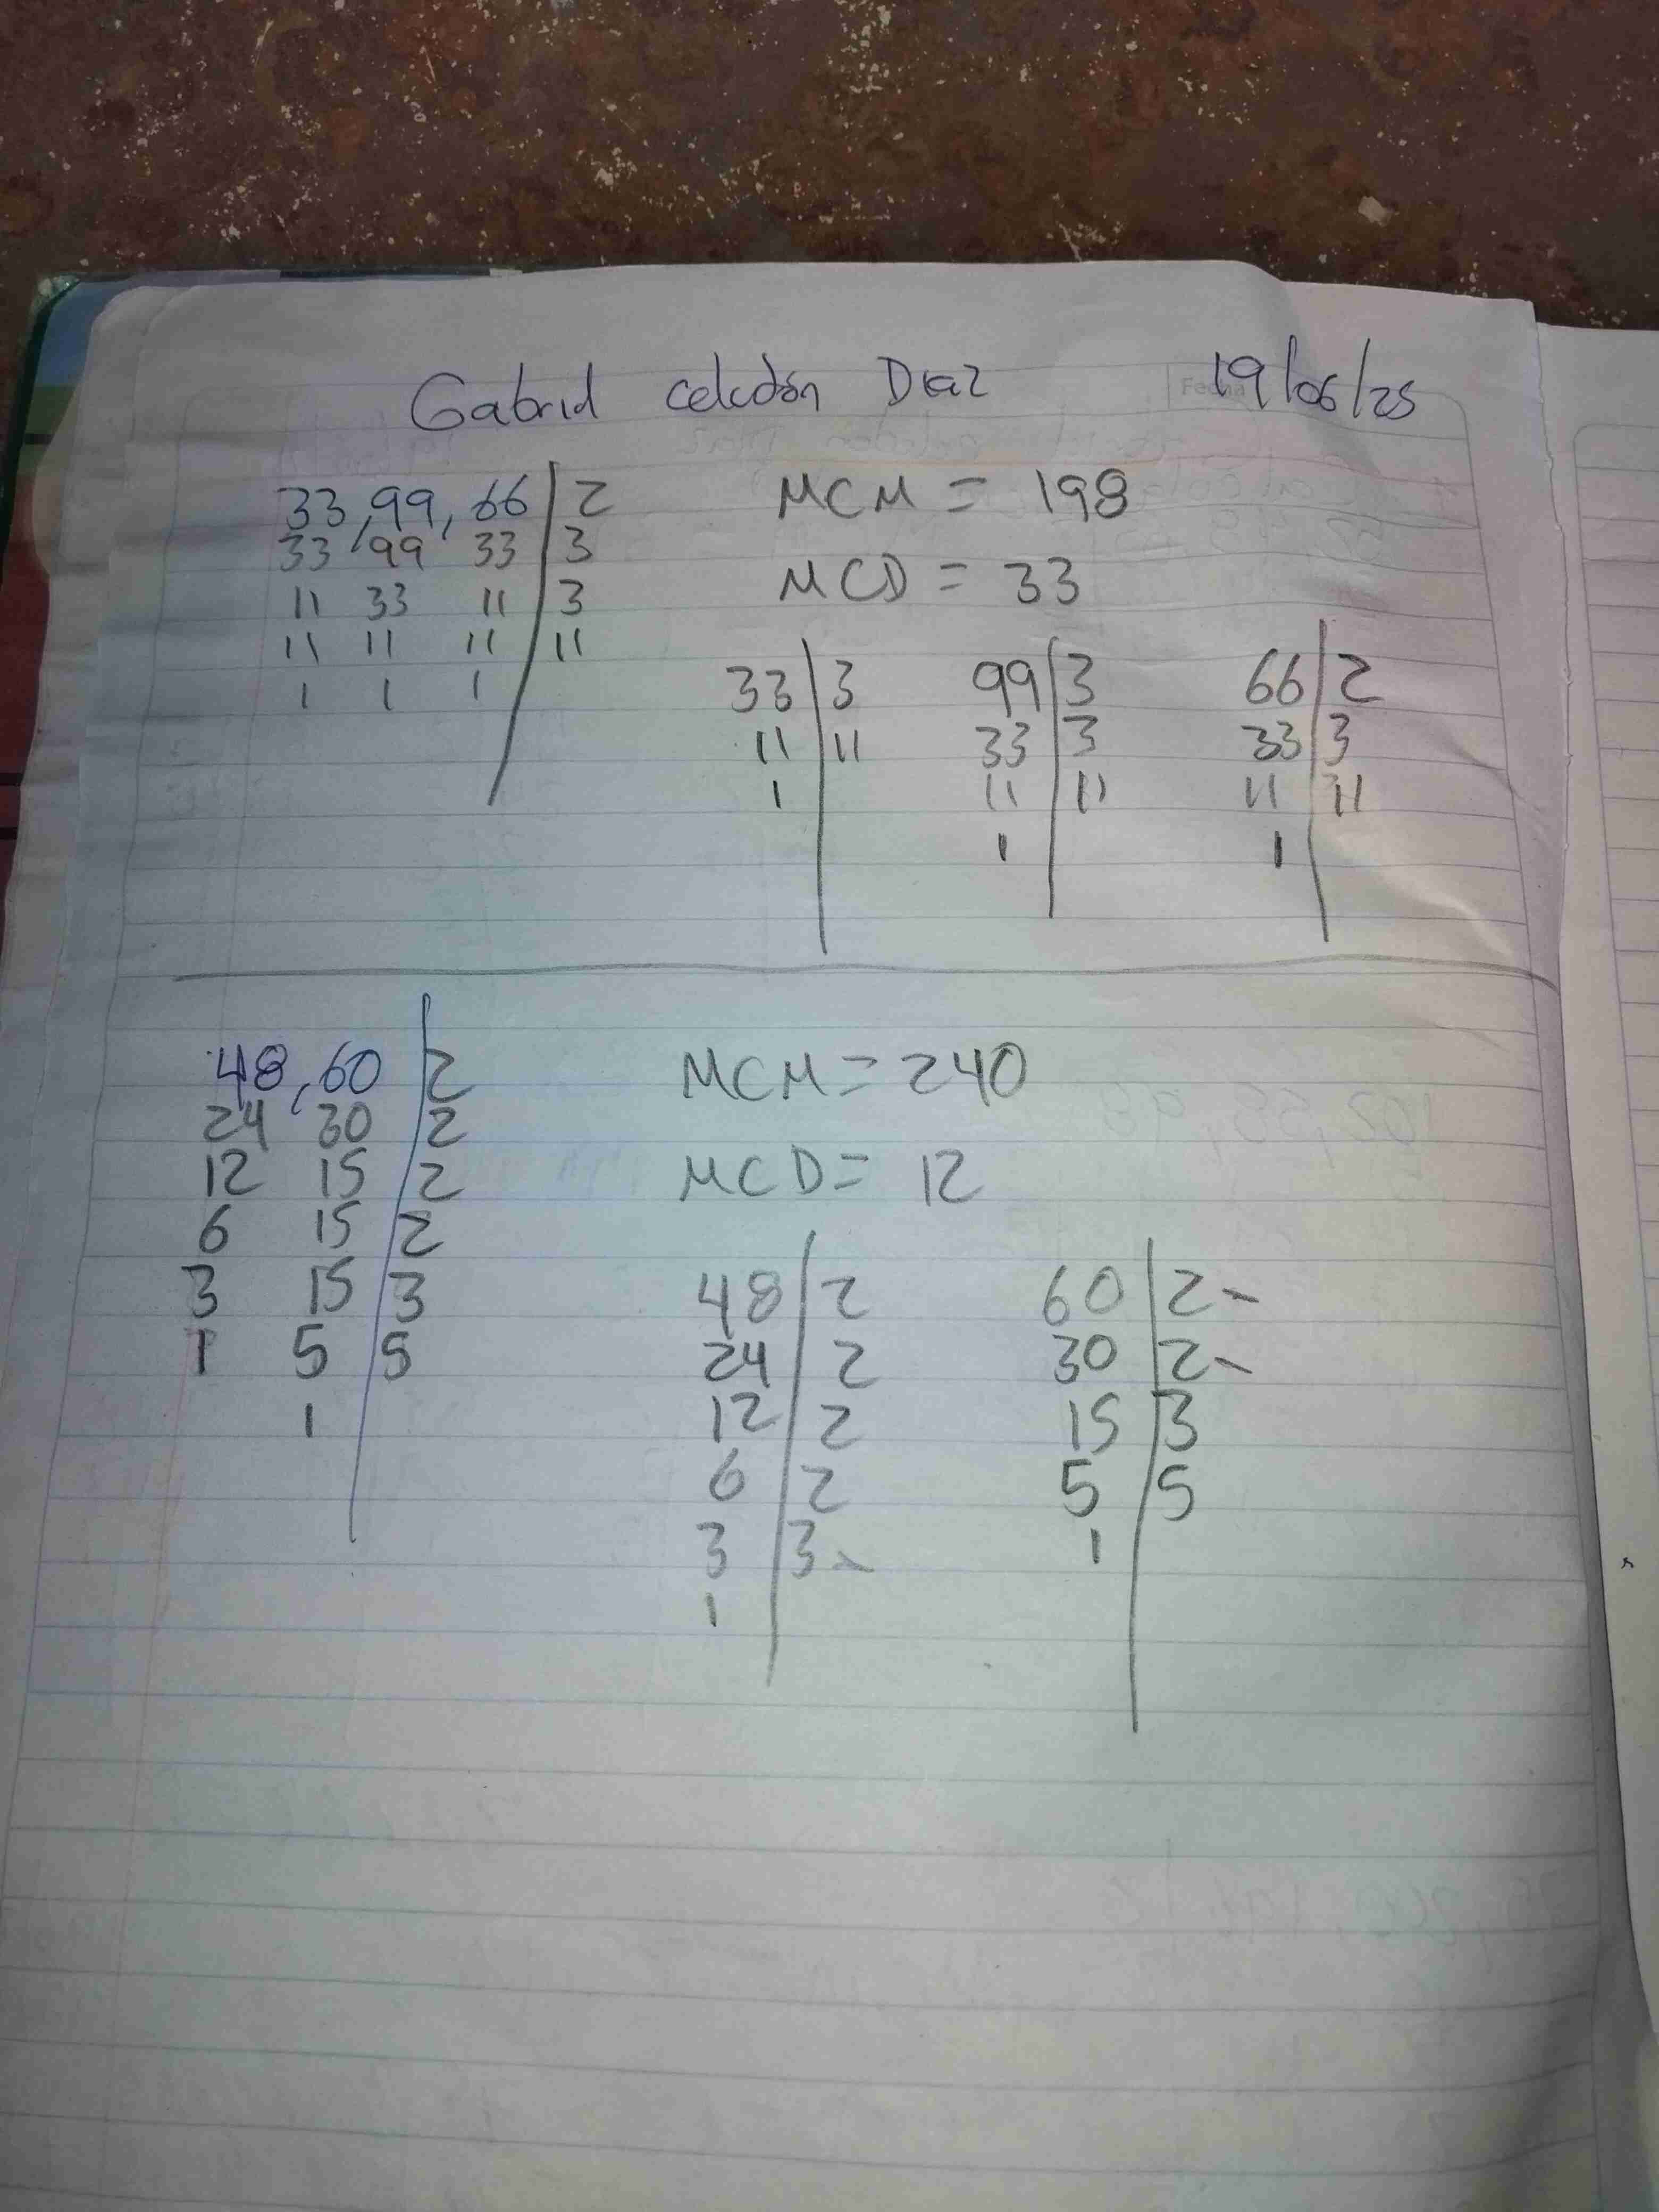 Gabriel Celedón Diaz 19/06/25
Fecha
33, 99, 66 | 2
33 99 33 | 3
11 33 11 | 3
11 11 11 | 11
1 1 1
MCM = 198
MCD = 33
33 | 3
11 | 11
1
99 | 3
33 | 3
11 | 11
1
66 | 2
33 | 3
11 | 11
1
48, 60 | 2
24 30 | 2
12 15 | 2
6 15 | 2
3 15 | 3
1 5 | 5
1
MCM = 240
MCD = 12
48 | 2
24 | 2
12 | 2
6 | 2
3 | 3
1
60 | 2
30 | 2
15 | 3
5 | 5
1